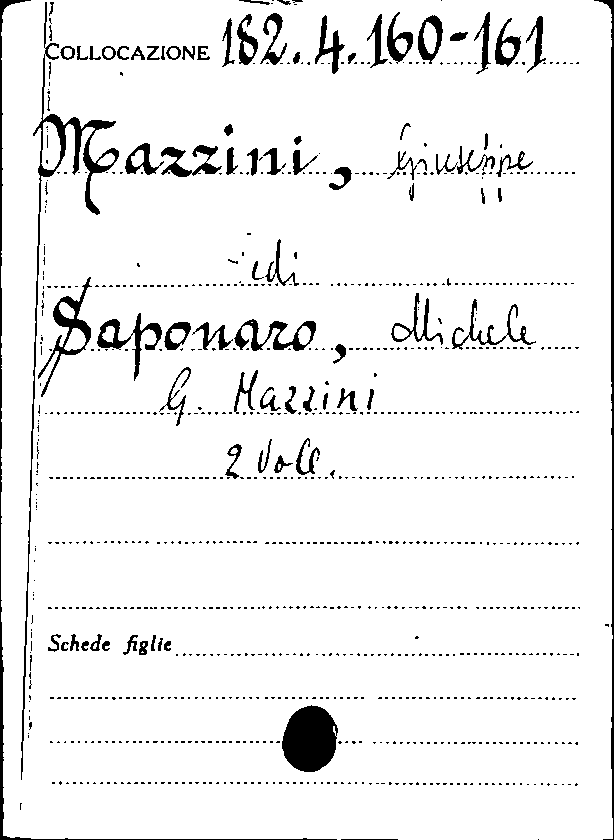 COLLOCAZIONE 182.4.160-161
Mazzini, Giuseppe
vedi
Saponaro, Michele
G. Mazzini
2 Voll.
Schede figlie